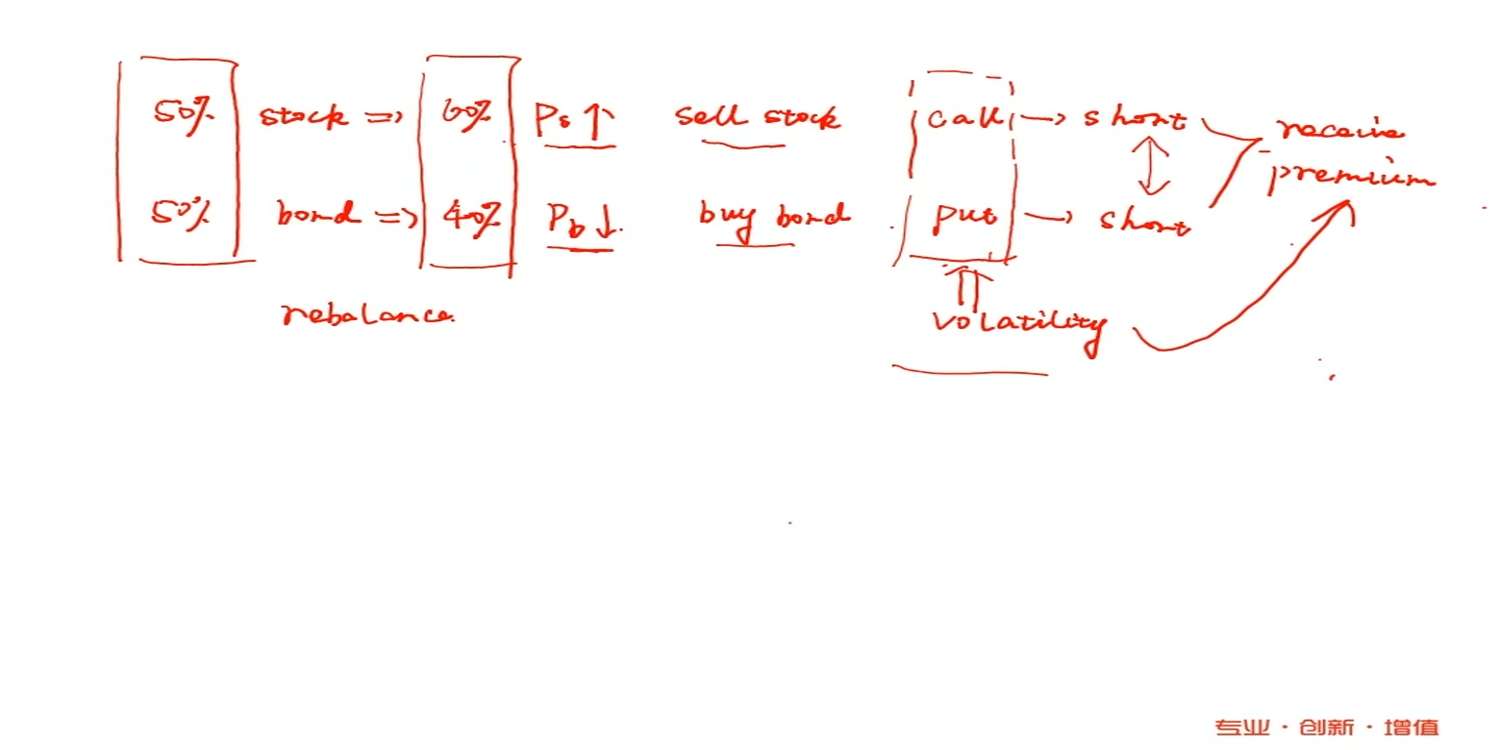 50% stock => 60% Ps↑ sell stock call → short receive
premium
50% bond => 40% Pb↓. buy bond put → short
rebalance.
volatility
专业·创新·增值